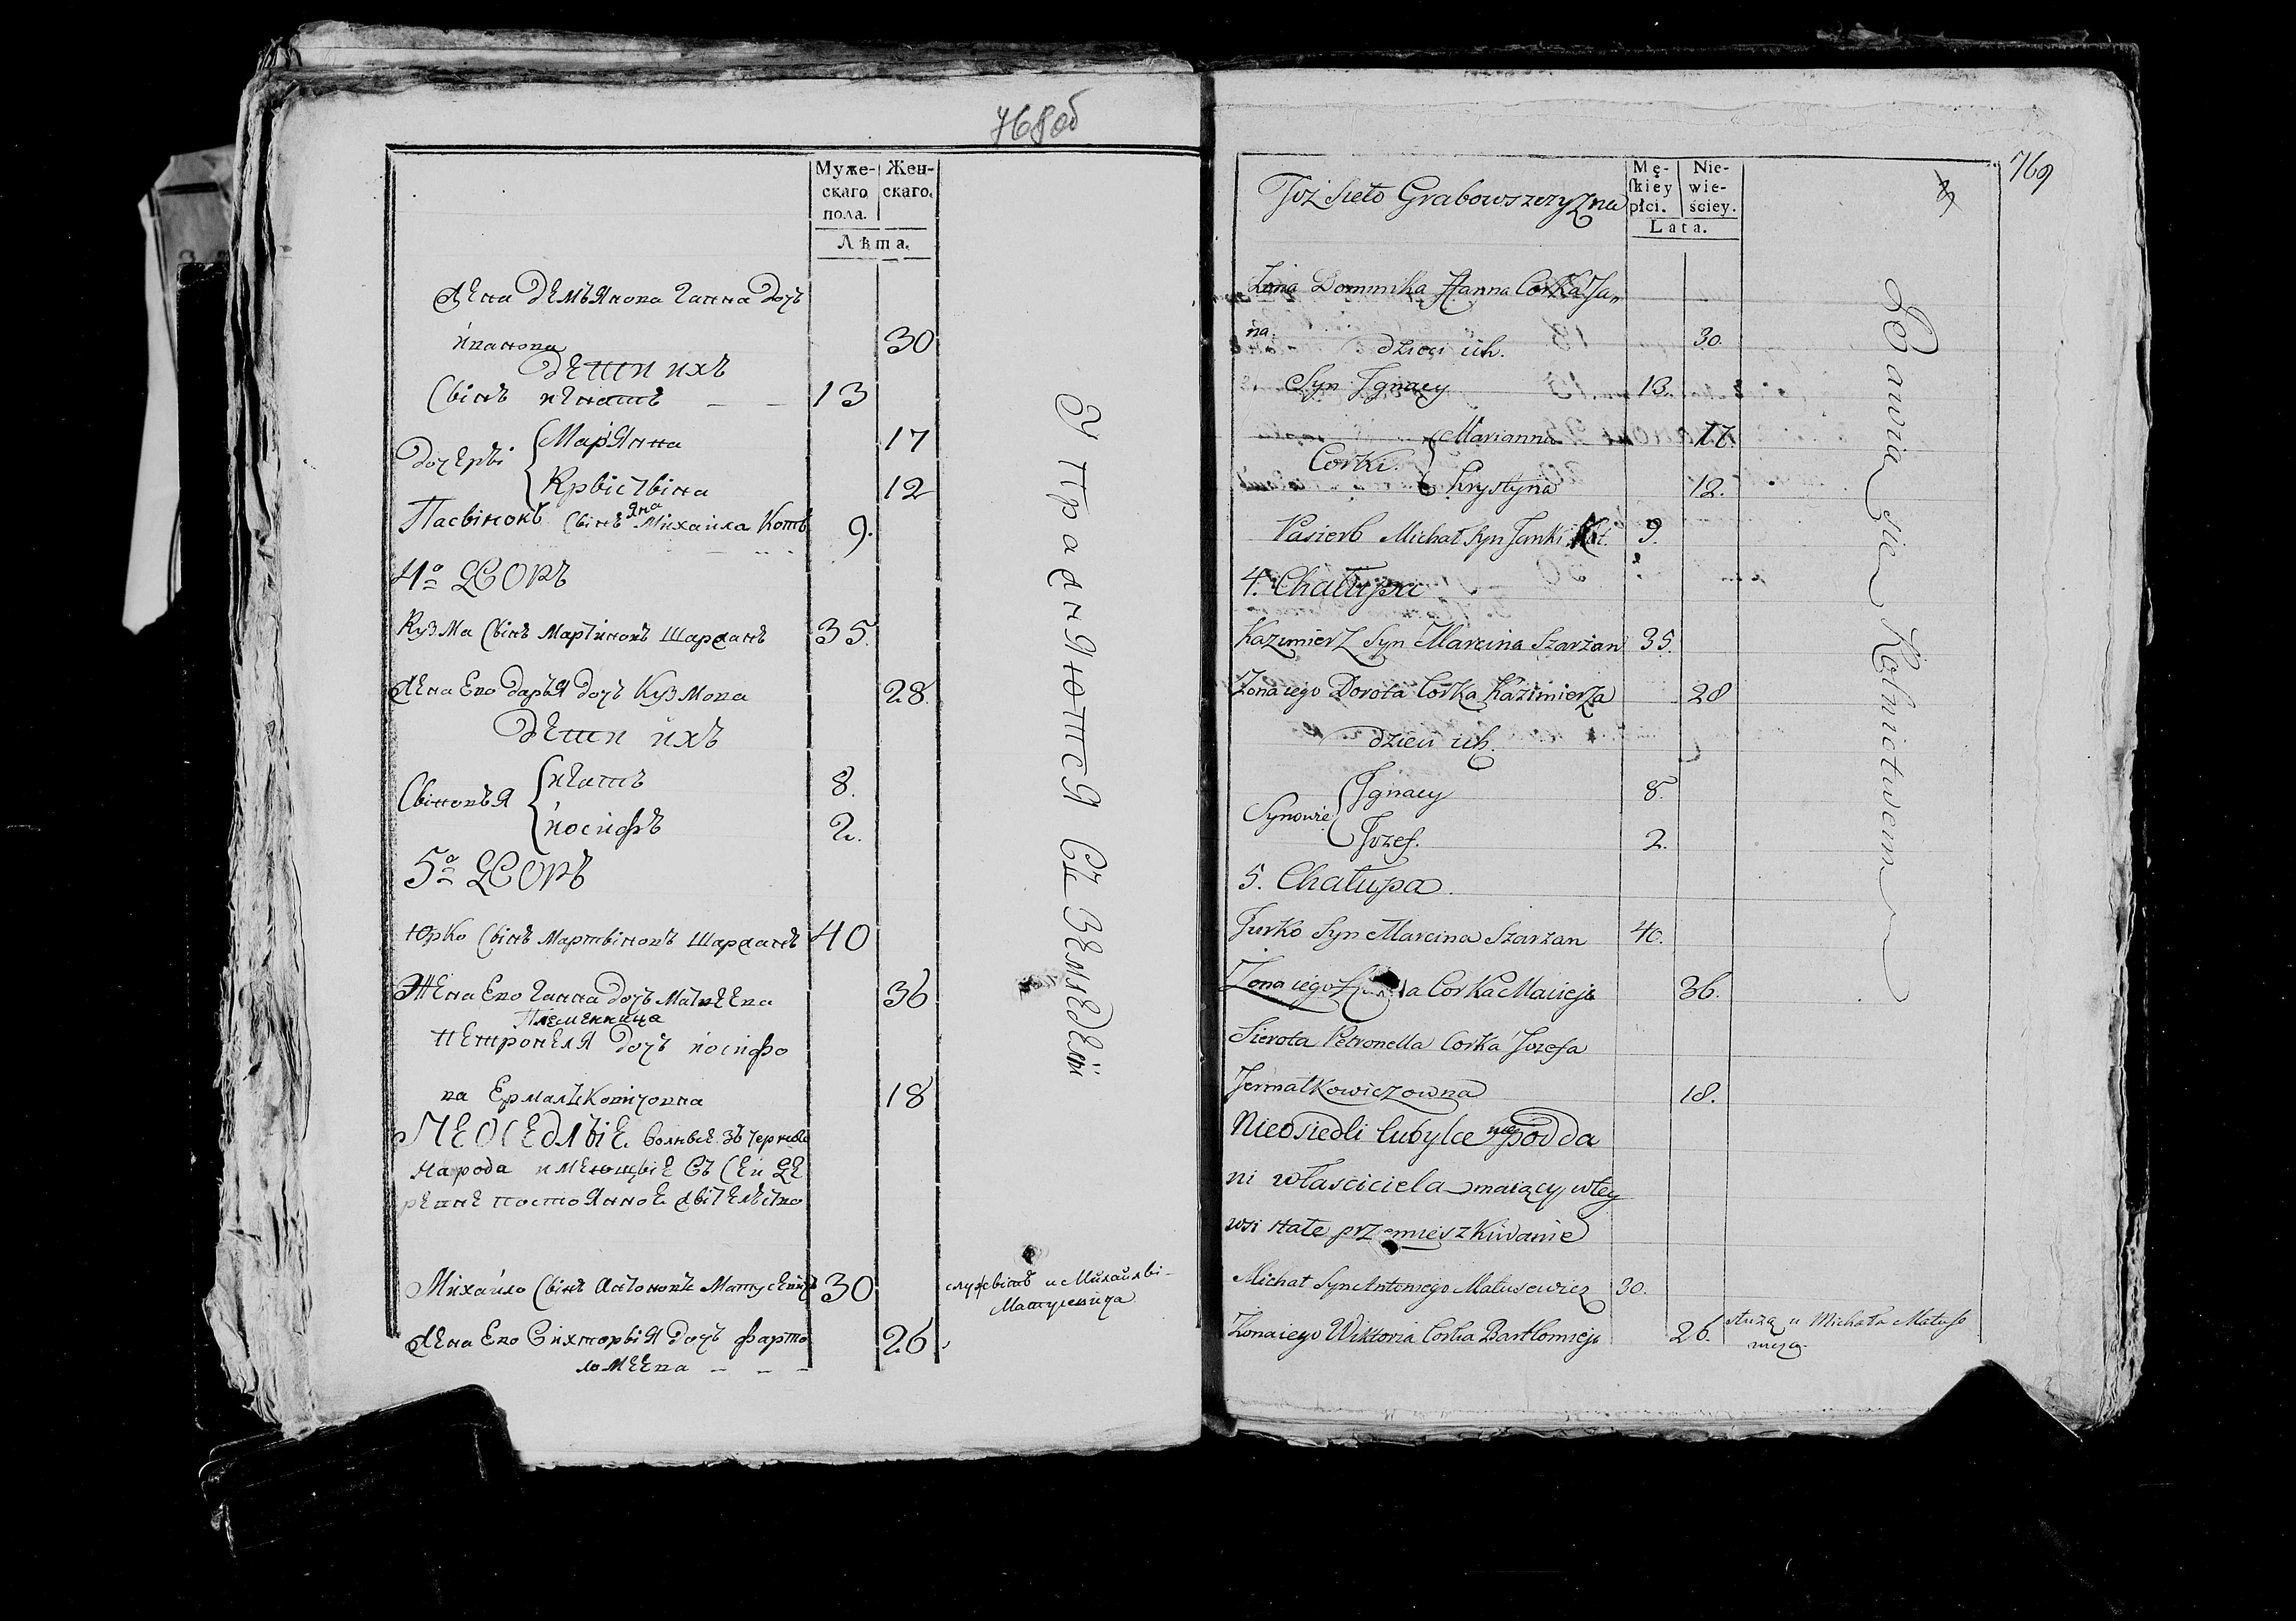 768 об
Муже-
скаго
пола.
Жен-
скаго.
Лѣта.
Жена демъянова Ганна дочъ
иванова 30
дети ихъ
Сынъ игнатъ 13
дочеры { Марянна 17
Крысътына 12
Пасынокъ Сынъ яна Михайла Котъ 9.
4о дворъ
Кузма Сынъ Мартиновъ Шаржанъ 35.
Жена Ево даръя дочъ Кузмова 28.
дети ихъ
Сыновъя { игатъ 8.
иосифъ 2.
5о дворъ
Юрко Сынъ Мартыновъ Шаржанъ 40
Жена Ево Ганна дочъ Матвеева 36
Племенница
петронеля дочъ иосифо
ва Ермалъковичовна 18
НЕОСЕДЛЫЕ
народа имеющые Съ Сей де
ревне постоянное жытелъство
Михайло Сынъ Антоновъ Матусевичъ 30
служытъ и Михайлы
Матусевича
Жена Ево Вихторыя дочъ фарто 26
ломеева
Упражняются Съ Земледелй
769
Toż Sieło Grabowszczyzna
Mę-
skiey
płci.
Nie-
wie-
ściey.
Lata.
Żona Dominika Hanna Corka Ja„
na. 30.
dzieci ich.
Syn Jgnacy 13.
Corki. { Marianna 17.
Krystyna 12.
Pasierb Michał Syn Janki Kot. 9.
4. Chałupa
Kazimierz Syn Marcina Szarżan 35.
Żona iego Dorota Corka Kazimierza 28
dzieci ich.
Synowie { Jgnacy 8.
Jozef. 2.
5. Chałupa.
Jurko Syn Marcina Szarżan 40.
Żona iego Corka Macieja 36.
Sierota Petronella Corka Jozefa
Jermałkowiczowna 18.
Nieosiedli lubylce nie podda
ni własciciela maiący w tey
wsi stałe przemieszkiwanie
Michał Syn Antoniego Matusewicz 30.
Żona iego Wiktoria Corka Bartłomieja 26.
służą u Michała Matuse
wicza.
Bawią się Rolnictwem